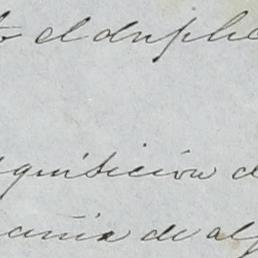 el duplic
quisicion d
cañia de al